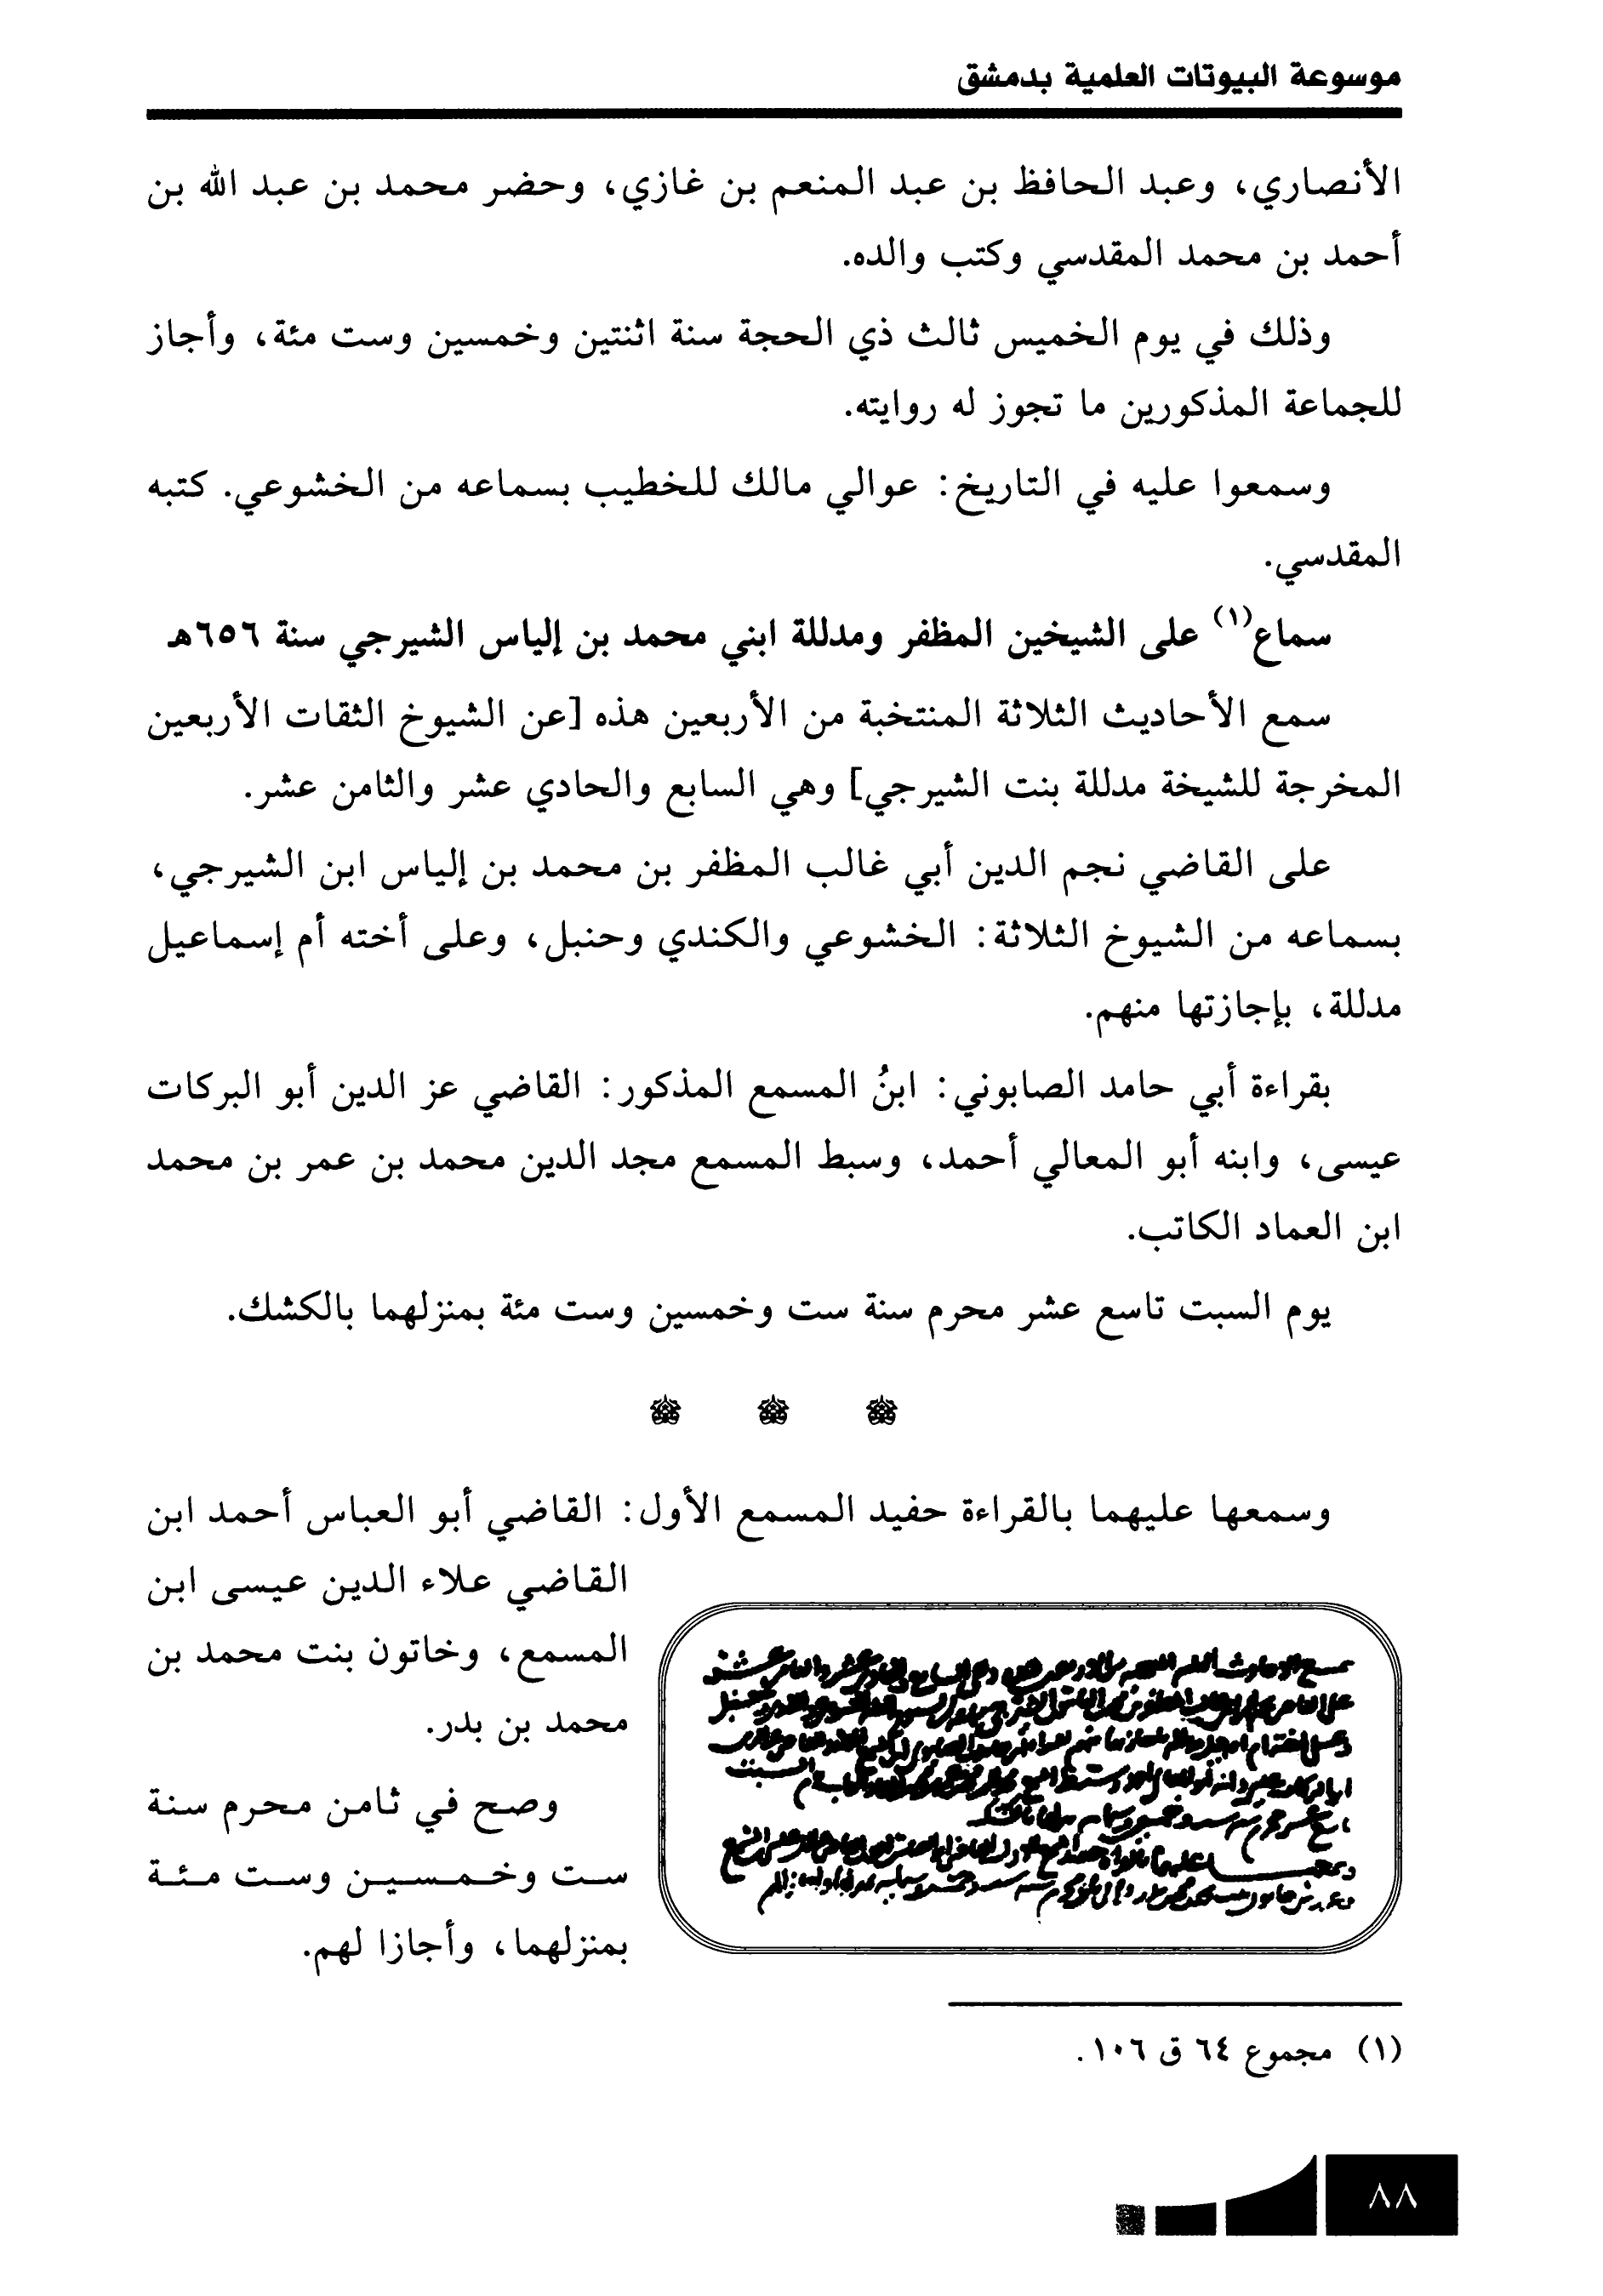 موسوعة البيوتات العلمية بدمشق
الأنصاري، وعبد الحافظ بن عبد المنعم بن غازي، وحضر محمد بن عبد الله بن
أحمد بن محمد المقدسي وكتب والده.
وذلك في يوم الخميس ثالث ذي الحجة سنة اثنتين وخمسين وست مئة، وأجاز
للجماعة المذكورين ما تجوز له روايته.
وسمعوا عليه في التاريخ: عوالي مالك للخطيب بسماعه من الخشوعي. كتبه
المقدسي.
سماع(١) على الشيخين المظفر ومدللة ابني محمد بن إلياس الشيرجي سنة ٦٥٦هـ
سمع الأحاديث الثلاثة المنتخبة من الأربعين هذه [عن الشيوخ الثقات الأربعين
المخرجة للشيخة مدللة بنت الشيرجي] وهي السابع والحادي عشر والثامن عشر.
على القاضي نجم الدين أبي غالب المظفر بن محمد بن إلياس ابن الشيرجي،
بسماعه من الشيوخ الثلاثة: الخشوعي والكندي وحنبل، وعلى أخته أم إسماعيل
مدللة، بإجازتها منهم.
بقراءة أبي حامد الصابوني: ابنُ المسمع المذكور: القاضي عز الدين أبو البركات
عيسى، وابنه أبو المعالي أحمد، وسبط المسمع مجد الدين محمد بن عمر بن محمد
ابن العماد الكاتب.
يوم السبت تاسع عشر محرم سنة ست وخمسين وست مئة بمنزلهما بالكشك.
وسمعها عليهما بالقراءة حفيد المسمع الأول: القاضي أبو العباس أحمد ابن
القاضي علاء الدين عيسى ابن
المسمع، وخاتون بنت محمد بن
محمد بن بدر.
وصح في ثامن محرم سنة
ست وخمسين وست مئة
بمنزلهما، وأجازا لهم.
(١) مجموع ٦٤ ق ١٠٦.
٨٨